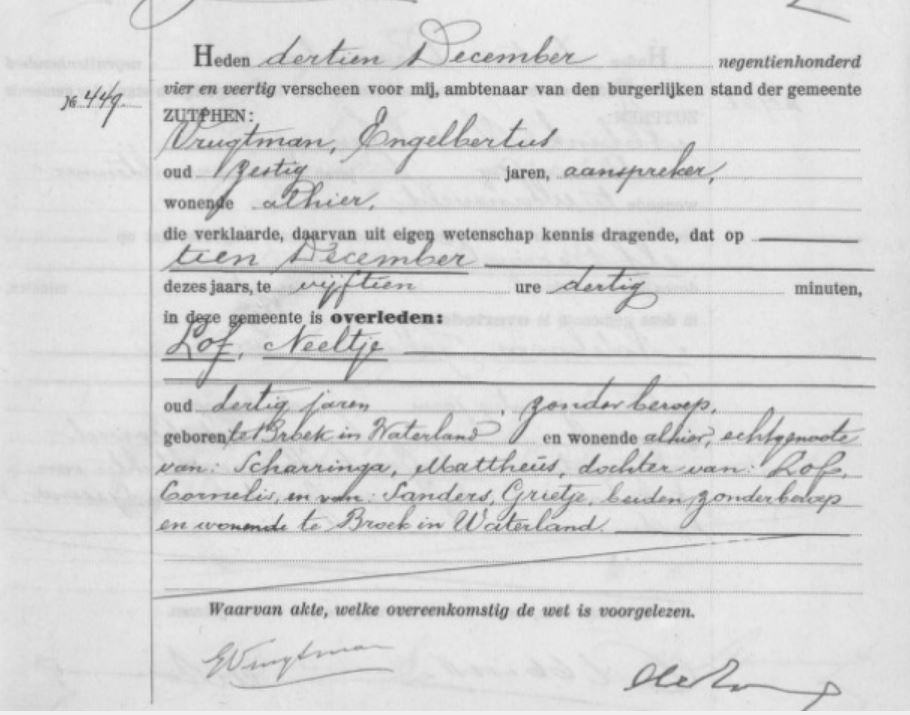 Heden dertien December negentienhonderd
No 449. vier en veertig verscheen voor mij, ambtenaar van den burgerlijken stand der gemeente
ZUTPHEN:
Vrugtman, Engelbertus
oud zestig jaren, aanspreker,
wonende alhier,
die verklaarde, daarvan uit eigen wetenschap kennis dragende, dat op
tien December
dezes jaars, te vijftien ure dertig minuten,
in deze gemeente is overleden:
Lof, Neeltje
oud dertig jaren, zonder beroep,
geboren te Broek in Waterland en wonende alhier, echtgenoote
van: Scharringa, Mattheüs, dochter van: Lof,
Cornelis, en van: Sanders, Grietje, beiden zonder beroep
en wonende te Broek in Waterland.
Waarvan akte, welke overeenkomstig de wet is voorgelezen.
EVrugtman